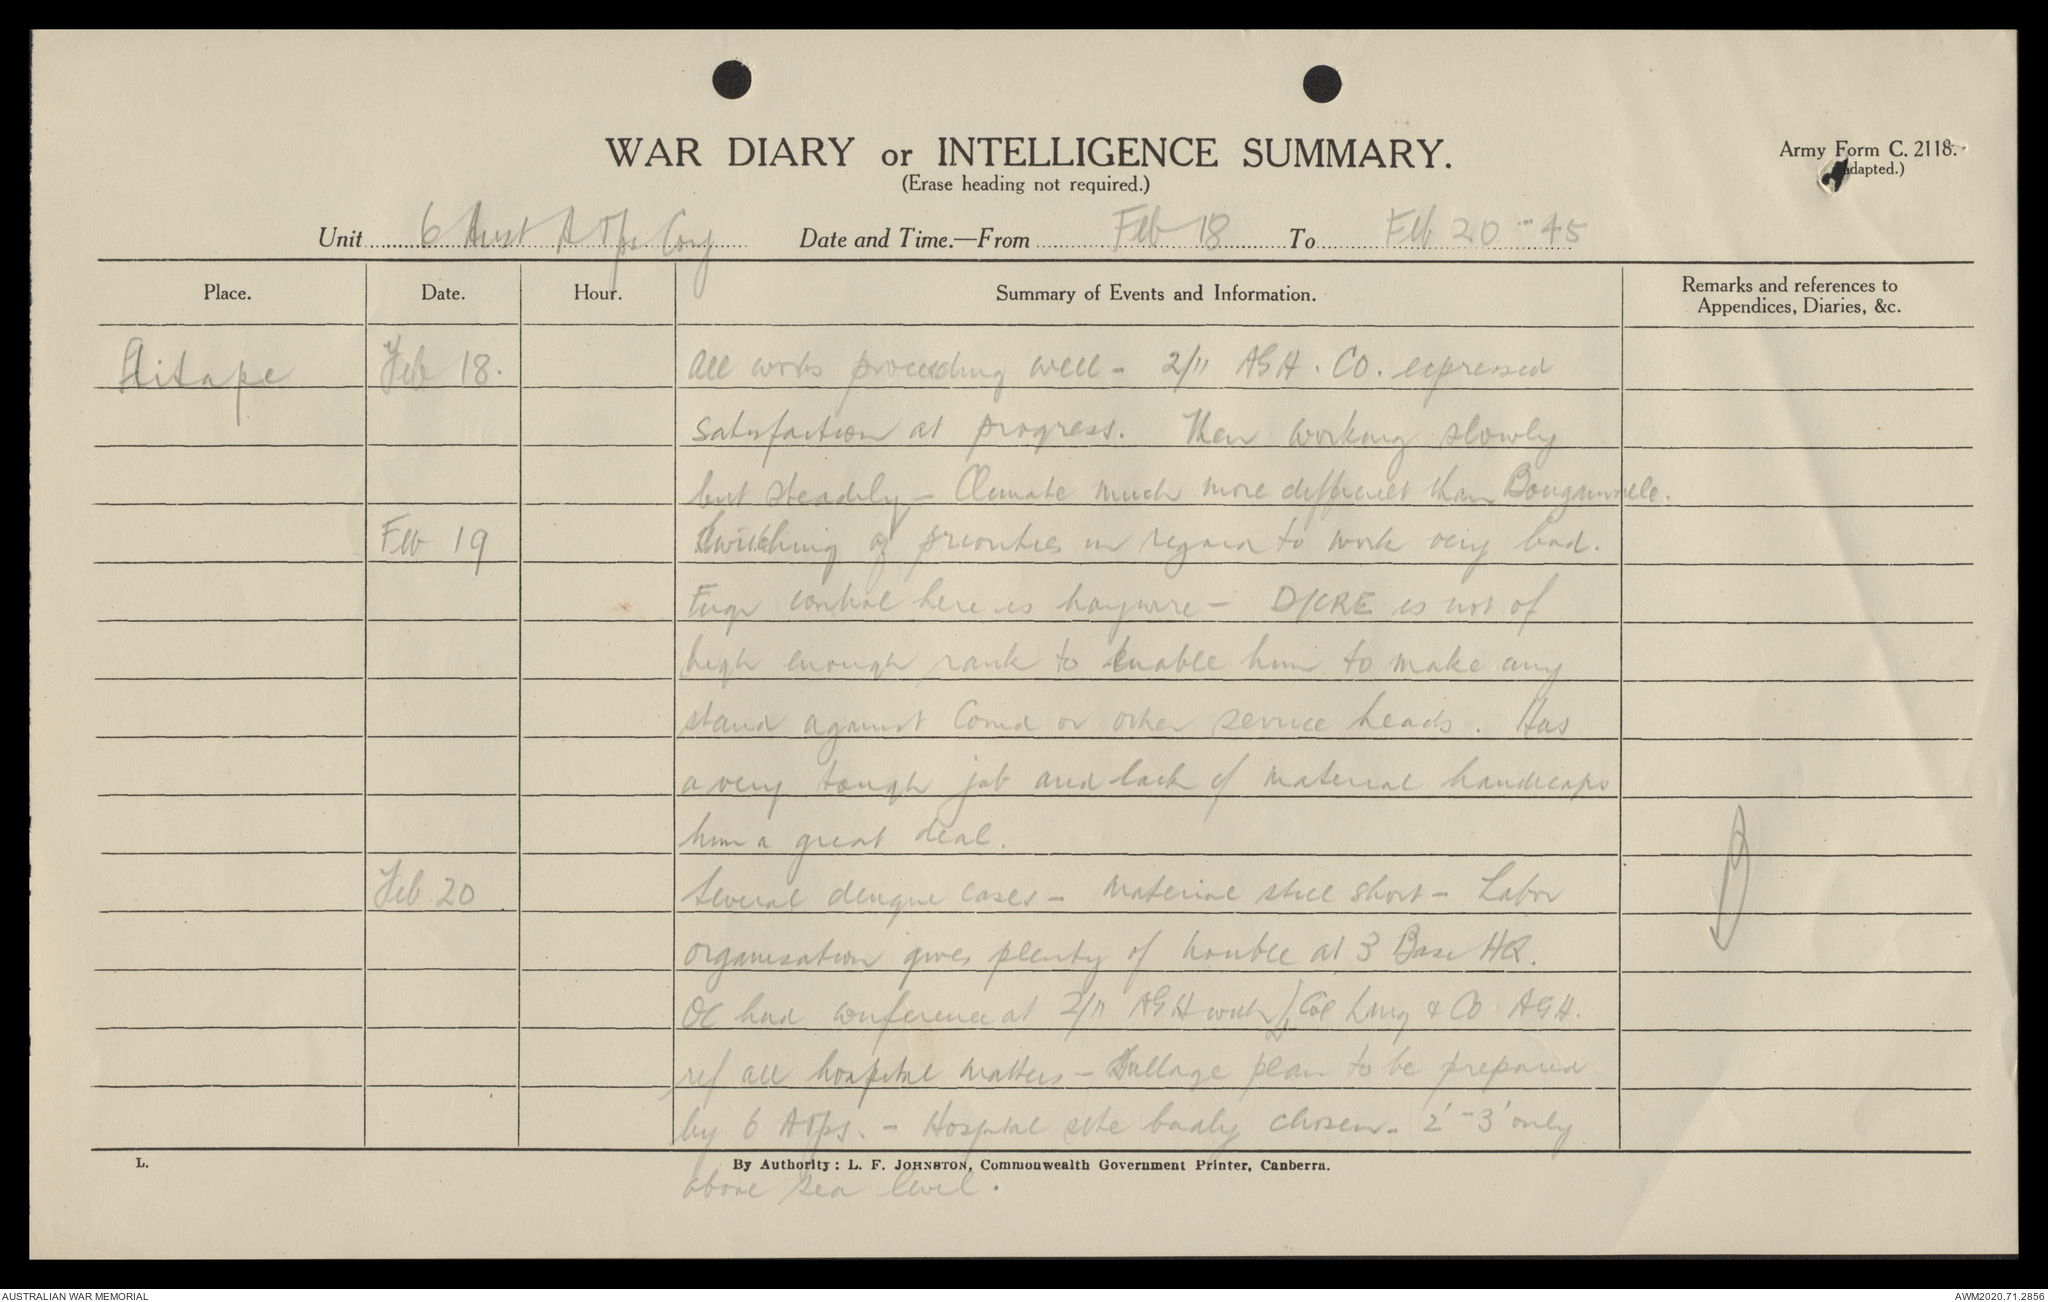 WAR DIARY or INTELLIGENCE SUMMARY.
(Erase heading not required.)
Army Form C. 2118.
(adapted.)
Unit 6 Aust A Tps Coy Date and Time.—From Feb 18 To Feb 20 - 45
Place. Date. Hour. Summary of Events and Information. Remarks and references to
Appendices, Diaries, &c.
Aitape Feb 18. All works proceeding well - 2/11 AGH. CO. expressed
satisfaction at progress. Men working slowly
but steadily - Climate much more difficult than Bougainville.
Feb 19 Switching of priorities in regard to work very bad.
Engr control here is haywire - D/CRE is not of
high enough rank to enable him to make any
stand against Comd or other service heads. Has
a very tough job and lack of material handicaps
him a great deal.
Feb 20 Several dengue cases - Material still short - Labor
organisation gives plenty of trouble at 3 Base HQ.
OC had conference at 2/11 AGH with Col Lang & CO AGH.
ref all hospital matters - Sullage plan to be prepared
by 6 A Tps. - Hospital site badly chosen - 2' - 3' only
above sea level.
L. By Authority: L. F. JOHNSTON, Commonwealth Government Printer, Canberra.
AUSTRALIAN WAR MEMORIAL AWM2020.71.2856